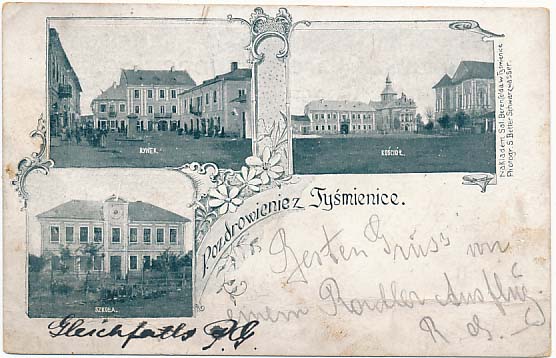 RYNEK.
KOŚCIÓŁ.
Nakładem Sal. Berenfelda w Tyśmienicy
Photogr. S. Better Schwarzwasser.
SZKOŁA.
Pozdrowienie z Tyśmienice.
Besten Gruss von
einem Radler-Ausflug.
R
Gleichfalls